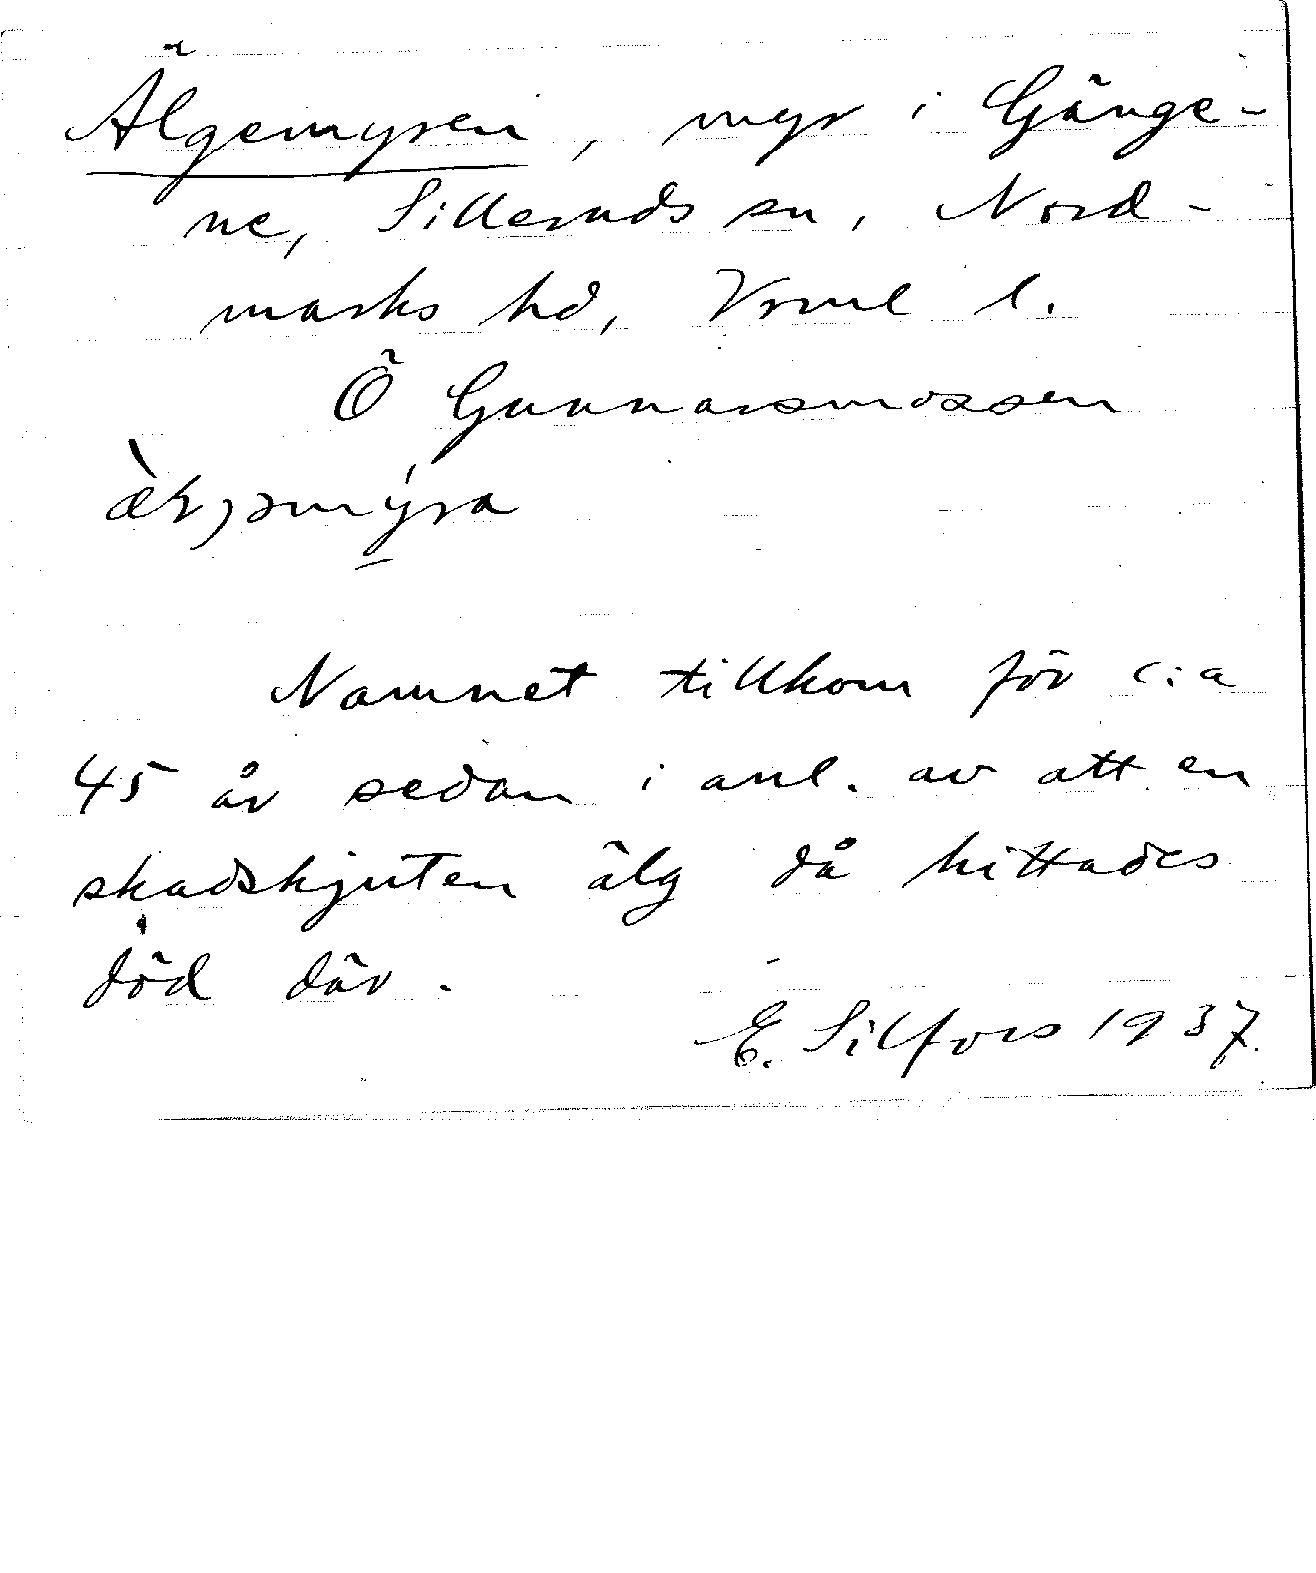 Älgemyren, myr i Gänge-
ne, Silleruds sn, Nord-
marks hd, Vrml l.
Ö Gunnarsmossen
Namnet tillkom för c:a
45 år sedan i anl. av att en
skadskjuten älg då hittades
död där.
E. Silfors 1937.